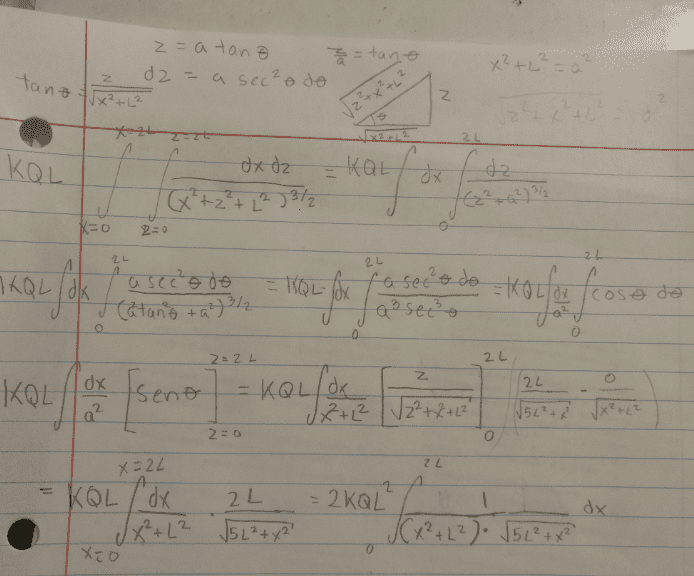 z = a tan θ   z/a = tan θ   x² + L² = a²
tan θ = z/√(x²+L²)   dz = a sec² θ dθ   √(z²+x²+L²)   z   θ   √(x²+L²)
KQL ∫_{x=0}^{x=2L} ∫_{z=0}^{z=2L} dx dz/(x²+z²+L²)^{3/2} = KQL ∫ dx ∫_0^{2L} dz/(z²+a²)^{3/2}
KQL ∫ dx ∫_0^{2L} a sec² θ dθ/(a² tan² θ + a²)^{3/2} = KQL ∫ dx ∫_0^{2L} a sec² θ dθ/a³ sec³ θ = KQL ∫ dx/a² ∫_0^{2L} cos θ dθ
KQL ∫ dx/a² [sen θ]_{z=0}^{z=2L} = KQL ∫ dx/x²+L² [z/√(z²+x²+L²)]_0^{2L} (2L/√(5L²+x²) - 0/√(x²+L²))
= KQL ∫_{x=0}^{x=2L} dx/x²+L² · 2L/√(5L²+x²) = 2KQL² ∫_0^{2L} 1/(x²+L²) · 1/√(5L²+x²) dx